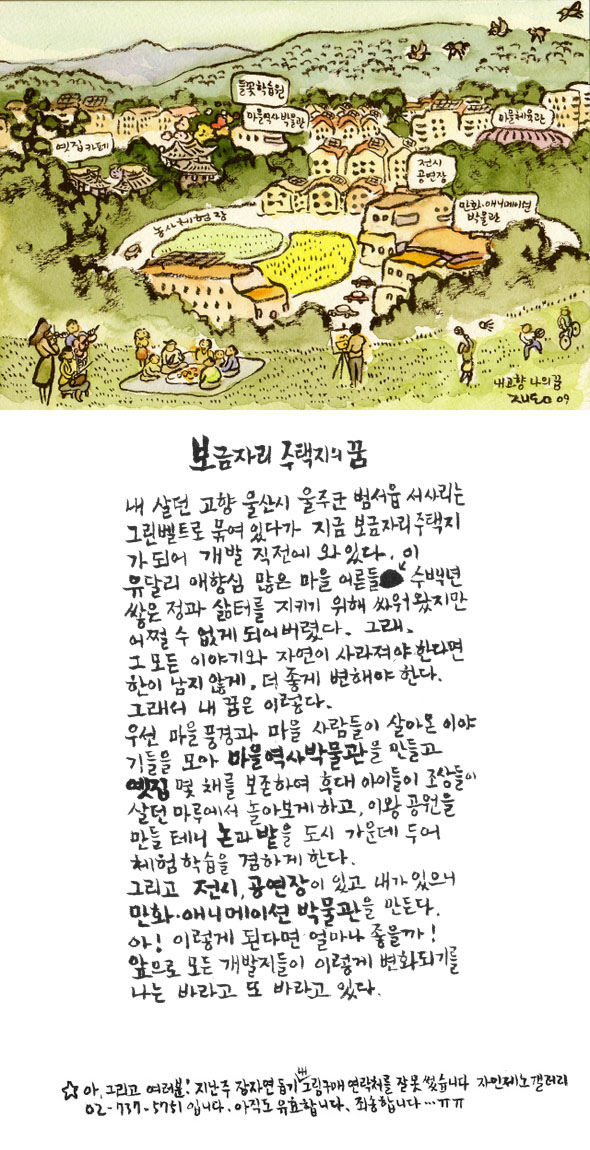 들꽃학습원
마을역사 박물관
마을체육관
옛집카페
전시
공연장
만화·애니메이션
박물관
농사체험장
내고향 나의꿈
09
보금자리 주택지의 꿈
내 살던 고향 울산시 울주군 범서읍 서사리는
그린벨트로 묶여 있다가 지금 보금자리주택지
가 되어 개발 직전에 와 있다.
유달리 애향심 많은 마을 어른들이 수백년
쌓은 정과 삶터를 지키기 위해 싸워 왔지만
어쩔 수 없게 되어버렸다. 그래,
그 모든 이야기와 자연이 사라져야 한다면
한이 남지 않게, 더 좋게 변해야 한다.
그래서 내 꿈은 이렇다.
우선 마을 풍경과 마을 사람들이 살아온 이야
기들을 모아 마을역사박물관을 만들고
옛집 몇 채를 보존하여 후대 아이들이 조상들이
살던 마루에서 놀아보게 하고, 이왕 공원을
만들 테니 논과 밭을 도시 가운데 두어
체험 학습을 겸하게 한다.
그리고 전시, 공연장이 있고 내가 있으니
만화·애니메이션 박물관을 만든다.
아! 이렇게 된다면 얼마나 좋을까!
앞으로 모든 개발지들이 이렇게 변화되기를
나는 바라고 또 바라고 있다.
☆ 아, 그리고 여러분! 지난주 장자연 돕기 내 그림구매 연락처를 잘못 썼습니다 자인제노갤러리
02-737-5751 입니다. 아직도 유효합니다. 죄송합니다…ㅠㅠ